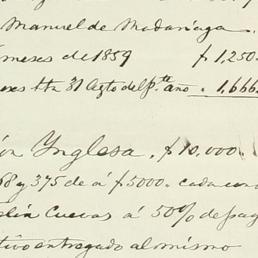 Manuel de Madariaga.
meses de 1859 $ 1,250.
hta 31 Agto del pte año. 1,666.
Ynglesa. $ 10,000.
68 y 375 de á $ 5000. cada uno
Cuevas á 50% de pag
tivo entregado al mismo